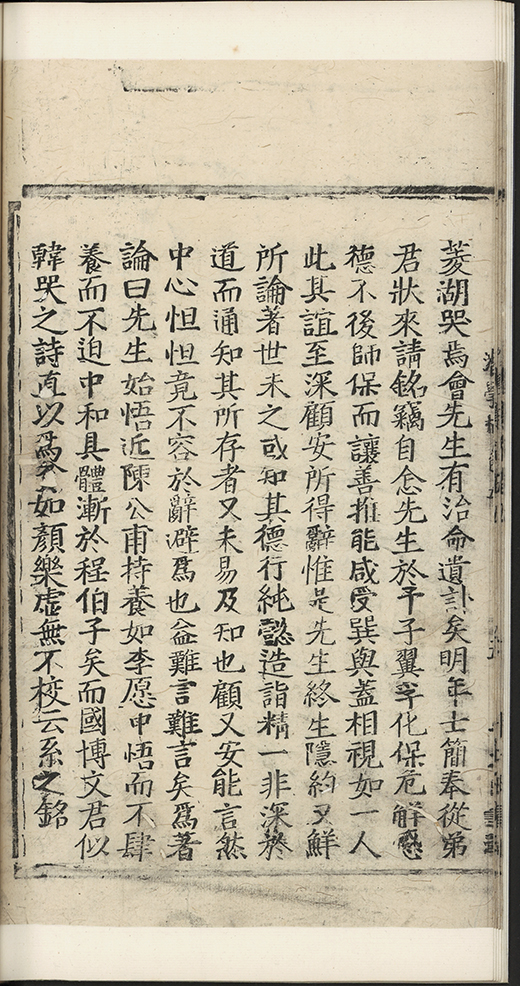 菱湖哭焉會先生有治命遺訃矣明年士簡奉從弟
君狀來請銘竊自念先生於予子翼字化保危解惑
德不後師保而讓善推能咸受巽與蓋相視如一人
此其誼至深顧安所得辭惟是先生終生隱約又鮮
所論著世未之或知其德行純懿造詣精一非深於
道而通知其所存者又未易及知也顧又安能言然
中心怛怛竟不容於辭避爲也益難言難言矣爲著
論曰先生始悟近陳公甫持養如李愿中悟而不肆
養而不迫中和具體漸於程伯子矣而國博文君似
韓哭之詩直以爲如顏樂虛無不校云系之銘